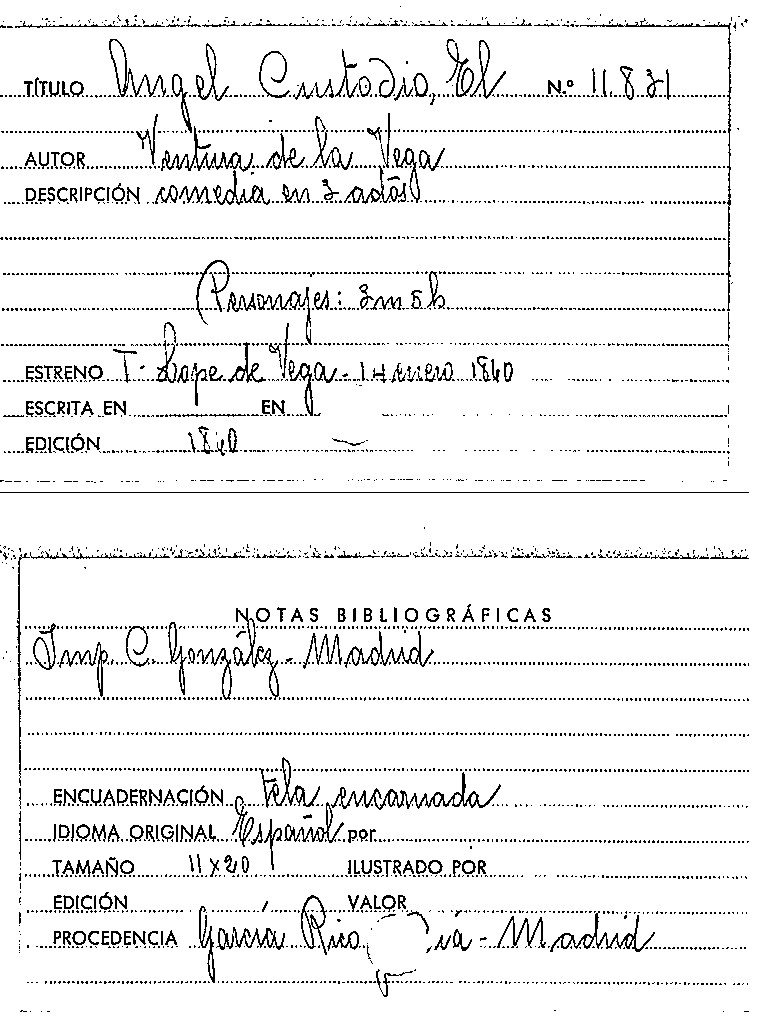 TÍTULO Angel Custodio, El N.º 11.831
AUTOR Ventura de la Vega
DESCRIPCIÓN comedia en 3 actos
Personajes: 3 m 5 h
ESTRENO T. Lope de Vega - 14 enero 1840
ESCRITA EN EN
EDICIÓN 1840
NOTAS BIBLIOGRÁFICAS
Imp. C. González - Madrid
ENCUADERNACIÓN tela encarnada
IDIOMA ORIGINAL Español por
TAMAÑO 11 x 20 ILUSTRADO POR
EDICIÓN VALOR
PROCEDENCIA García Rico - Madrid